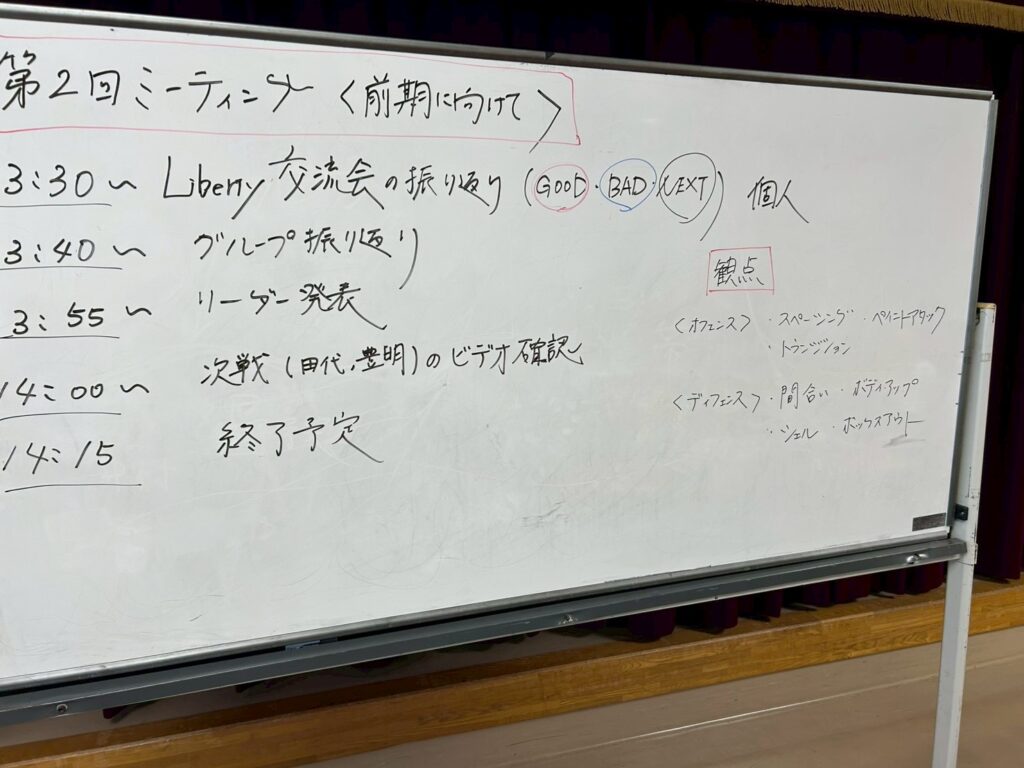 第2回ミーティング〈前期に向けて〉
3:30〜 Liberty交流会の振り返り(GOOD・BAD・NEXT) 個人
3:40〜 グループ振り返り
3:55〜 リーダー発表
14:00〜 次戦(田代,豊明)のビデオ確認
14:15 終了予定
観点
〈オフェンス〉・スペーシング・ペイントアタック
・トランジション
〈ディフェンス〉・間合い・ボディアップ
・シェル・ボックスアウト